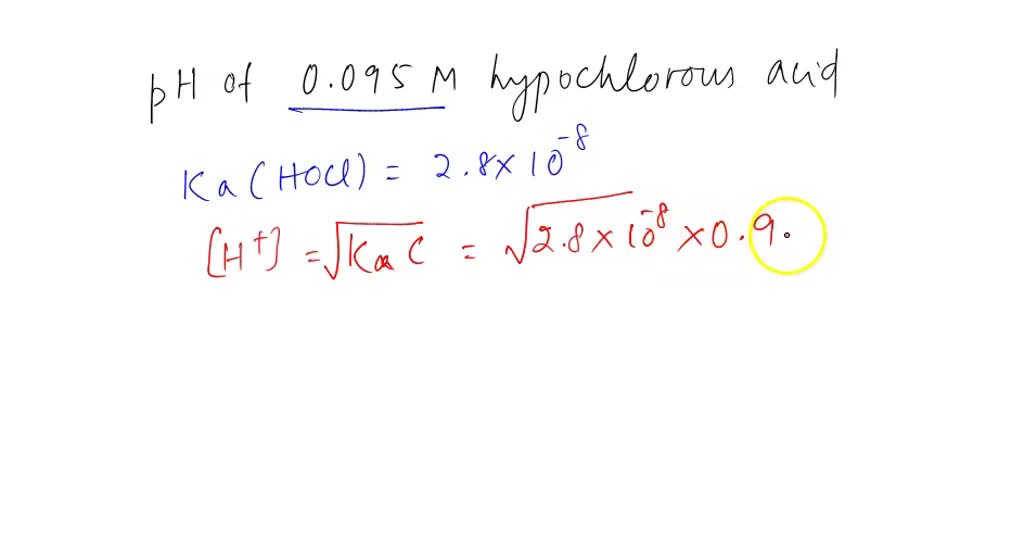 pH of 0.095 M hypochlorous acid
Ka (HOCl) = 2.8 × 10⁻⁸
[H⁺] = √Ka C = √2.8 × 10⁻⁸ × 0.9.